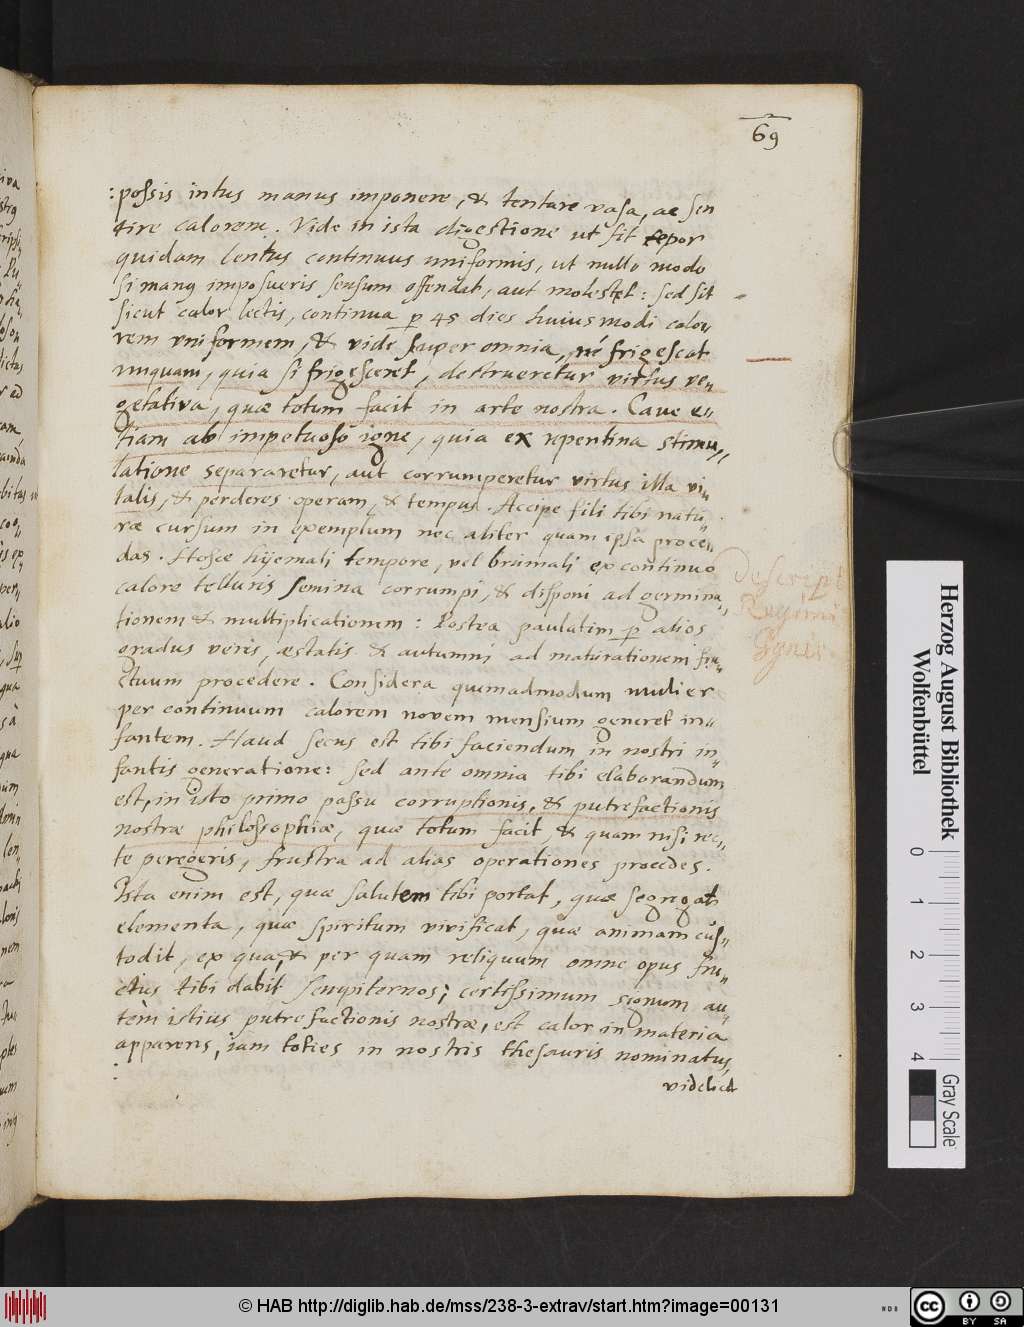 69
possis intus manus imponere, & tentare vasa, ac sen
tire calorem. Vide in ista digestione ut sit tepor
quidam lentus continuus uniformis, ut nullo modo
si manus imposueris sensum offendat, aut molestet: sed sit
sicut calor lectis, continua p 45 dies huiusmodi calo,,
rem uniformem, & vide super omnia, né frigescat
unquam, quia si frigesceret, destrueretur virtus ve,,
getativa, quæ totum facit in arte nostra. Cave e,,
tiam ab impetuoso igne, quia ex repentina stimu,,
latione separaretur, aut corrumperetur virtus illa vi,,
talis, & perderes operam, & tempus. Accipe fili tibi natu,,
ræ cursum in exemplum nec aliter quam ipsa proce,,
das. Hosce hyemali tempore, vel brumali ex continuo
calore telluris semina corrumpi, & disponi ad germina,,
tionem & multiplicationem: Postea paulatim p alios
gradus veris, æstatis & autumni ad maturationem fru,,
ctuum procedere. Considera quemadmodum mulier
per continuum calorem novem mensium generet in,,
fantem. Haud secus est tibi faciendum in nostri in,,
fantis generatione: sed ante omnia tibi elaborandum
est, in isto primo passu corruptionis, & putrefactionis
nostræ philosophiæ, quæ totum facit, & quam nisi rec,,
te peregeris, frustra ad alias operationes procedes.
Ista enim est, quæ salutem tibi portat, quæ segregat
elementa, quæ spiritum vivificat, quæ animam cus,,
todit, ex qua, & per quam reliquum omne opus fru,,
ctus tibi dabit sempiternos; certissimum signum au,,
tèm istius putrefactionis nostræ, est calor in materia
apparens, iam toties in nostris thesauris nominatus,
videlicet
Descript
Regimi
Ignis.
Herzog August Bibliothek
Wolfenbüttel
0 1 2 3 4
Gray Scale
© HAB http://diglib.hab.de/mss/238-3-extrav/start.htm?image=00131
cc BY SA